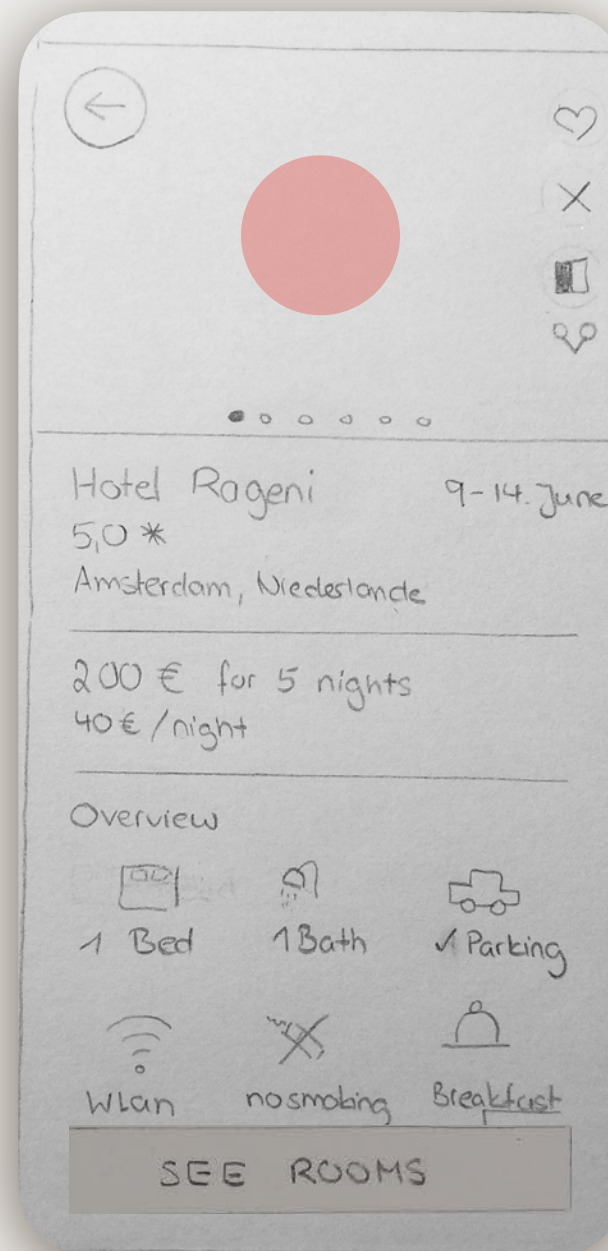 Hotel Rageni 9-14. June
5,0 *
Amsterdam, Niederlande
200 € for 5 nights
40 € / night
Overview
1 Bed 1 Bath ✓ Parking
WLan no smoking Breakfast
SEE ROOMS